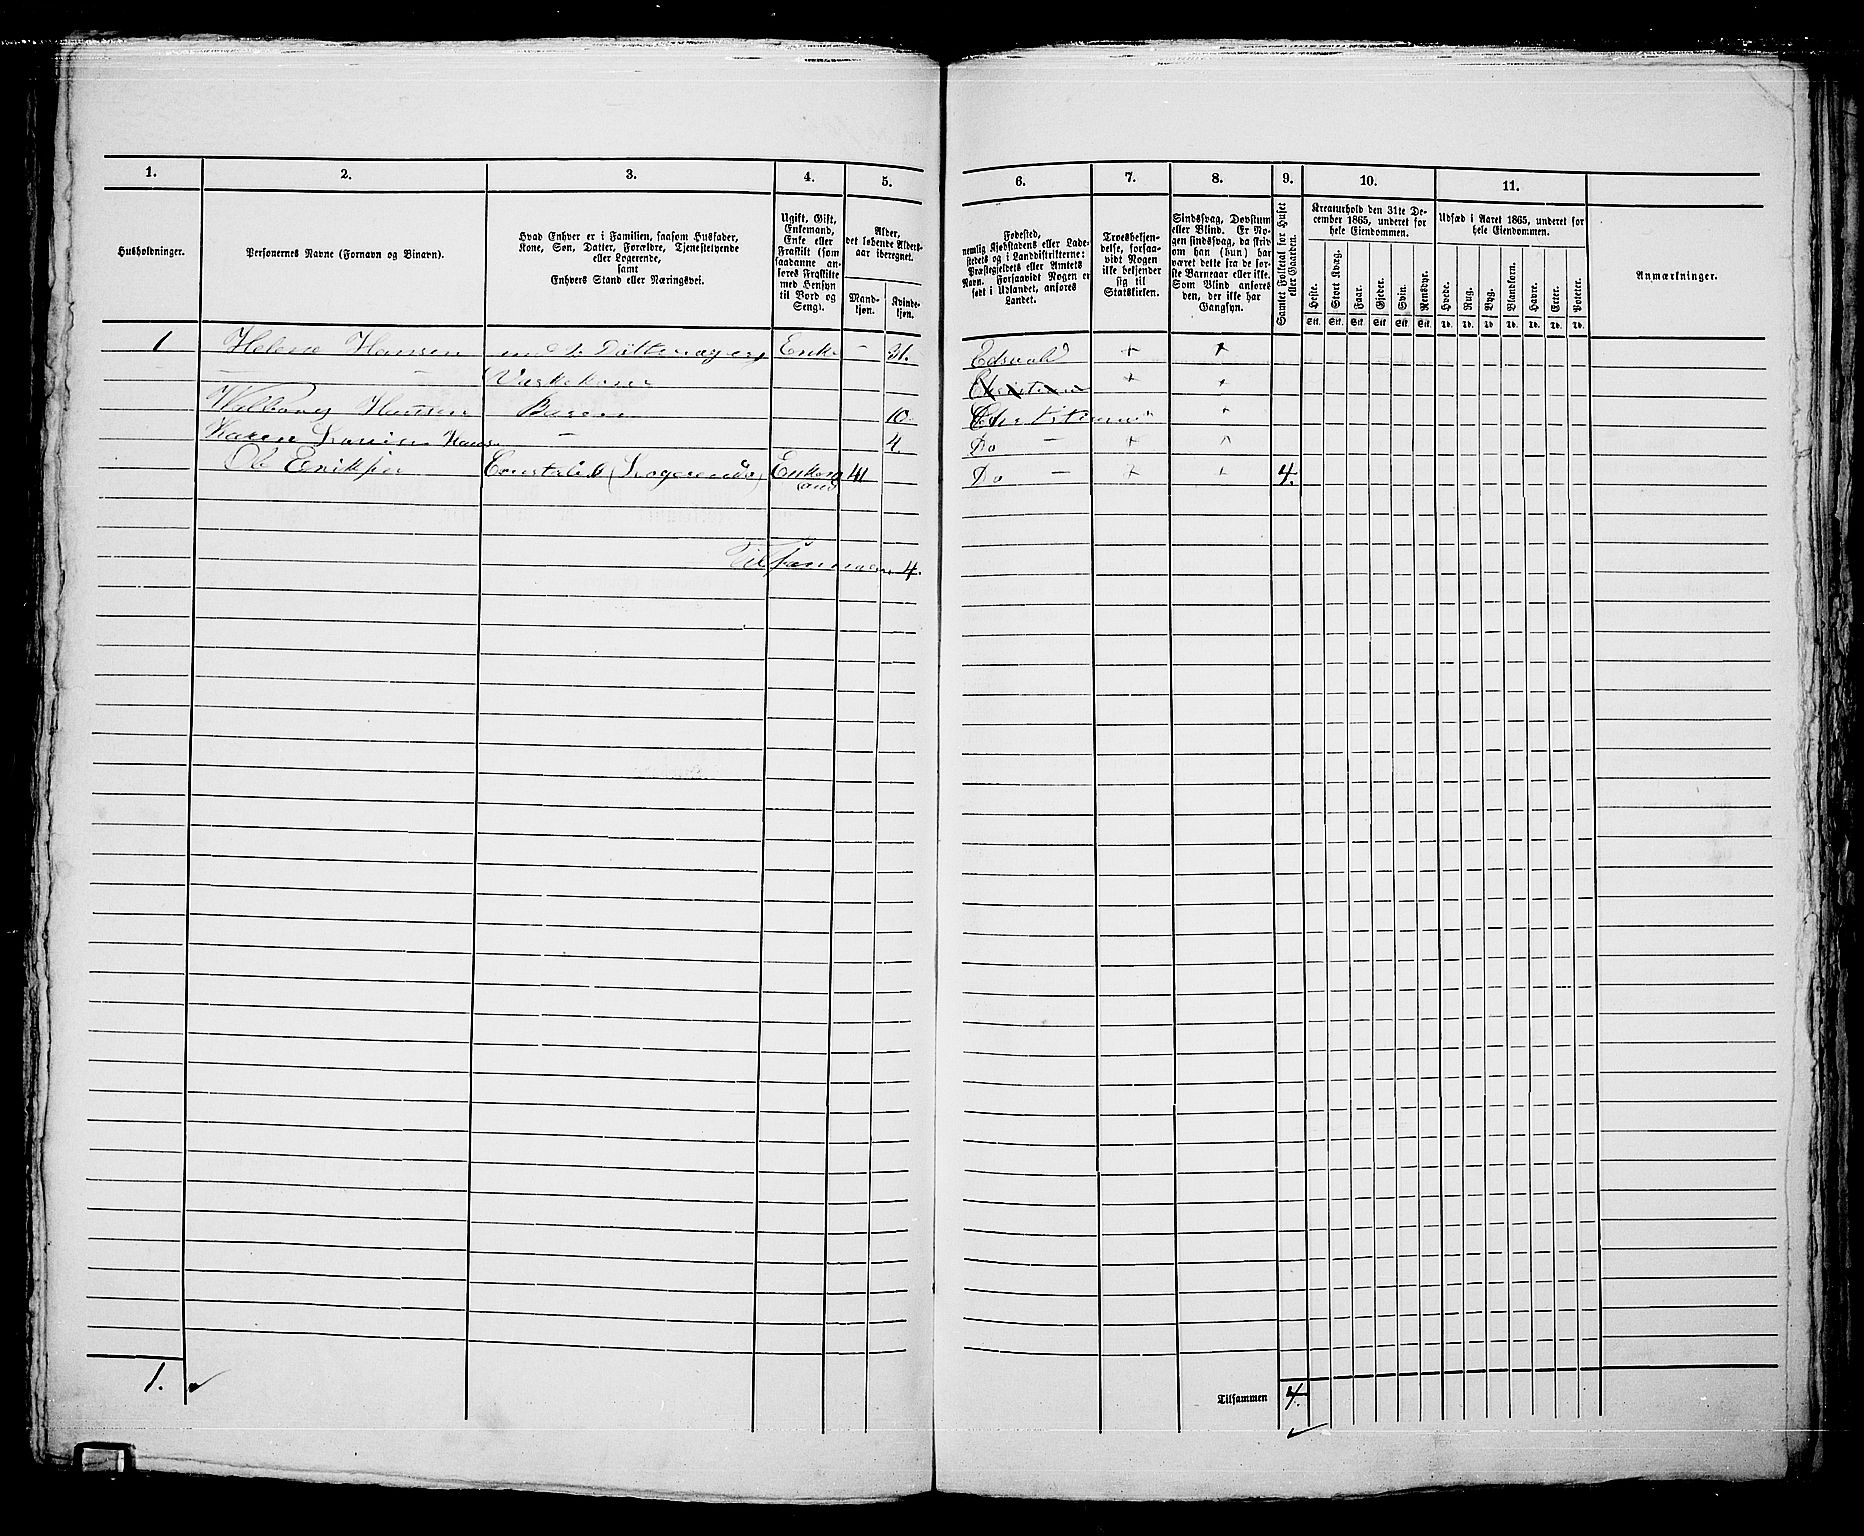 1. 2. 3. 4. 5. 6. 7. 8. 9. 10. 11.
Husholdninger.
Personernes Navne (Fornavn og Binavn).
Hvad Enhver er i Familien, saasom Husfader,
Kone, Søn, Datter, Forældre, Tjenestetyende
eller Logerende,
samt
Enhvers Stand eller Næringsvei.
Ugift, Gift,
Enkemand,
Enke eller
Fraskilt (som
saadanne an-
føres Fraskilte
med Hensyn
til Bord og
Seng).
Alder,
det løbende Alders-
aar iberegnet.
Mand-
kjøn.
Kvinde-
kjøn.
Fødested,
nemlig Kjøbstadens eller Lade-
stedets og i Landdistrikterne:
Præstegjeldets eller Amtets
Navn. Forsaavidt Nogen er
født i Udlandet, anføres
Landet.
Troesbekjen-
delse, forsaa-
vidt Nogen
ikke bekjender
sig til
Statskirken.
Sindssvag, Døvstum
eller Blind. Er No-
gen sindssvag, da skriv
om han (hun) har
været dette fra de før-
ste Barneaar eller ikke.
Som Blind anføres
den, der ikke har
Gangsyn.
Samlet Folketal for Huset
eller Gaarden.
Kreaturhold den 31te De-
cember 1865, underet for
hele Eiendommen.
Heste. Stort Kvæg. Faar. Gjeder. Svin. Rensdyr.
Stk. Stk. Stk. Stk. Stk. Stk.
Udsæd i Aaret 1865, underet for
hele Eiendommen.
Hvede. Rug. Byg. Blandkorn. Havre. Erter. Poteter.
Td. Td. Td. Td. Td. Td. Td.
Anmærkninger.
1 Helene Hansen Enke — 31. Edsvold + +
— — Vaskekone + +
Walborg Hansen Barn 10. Christiania +
Karen Lovise Hansen — 4. Do — + +
Ole Eriksen Constabel (Logerende) Enkem 41 Do — + + 4.
and
Tilsammen 4.
1.
Tilsammen 4.